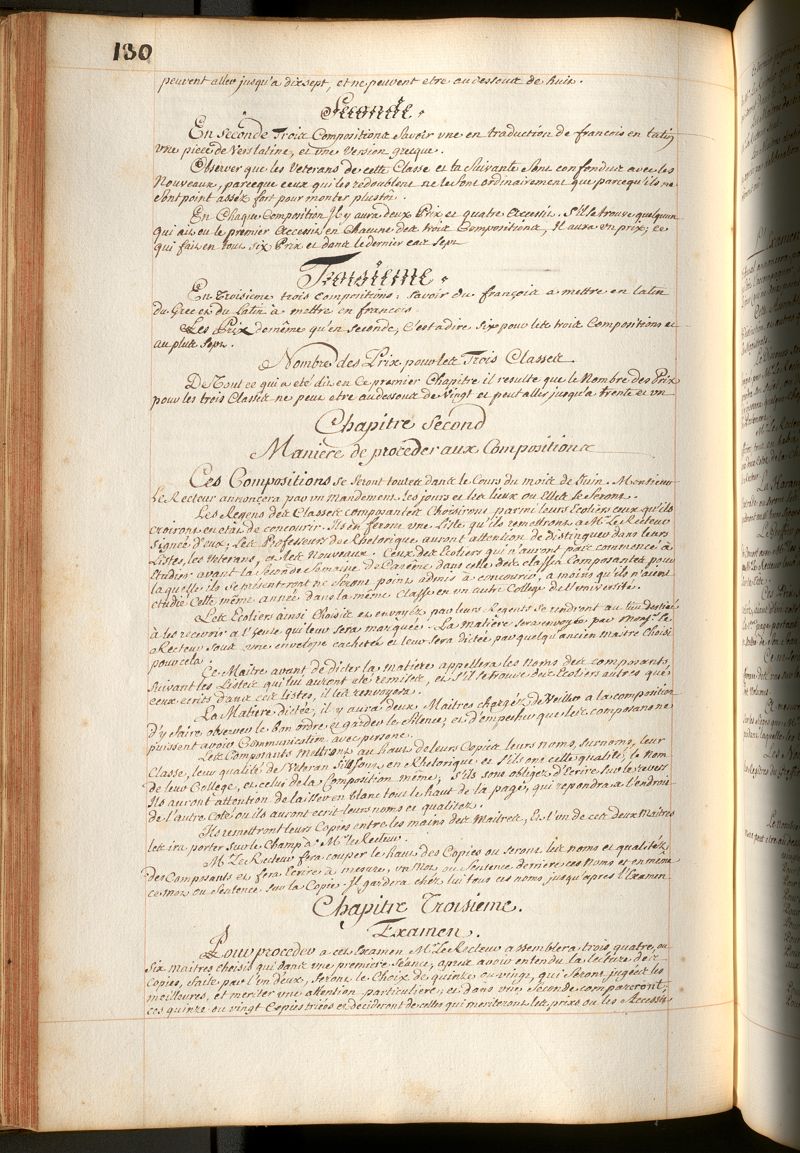 130
peuvent aller jusqu'a dix sept, et ne peuvent etre audessous de huit.
Seconde.
En Seconde Trois Compositions Savoir une en traduction de francois en Latin
une piece de Vers latine, et une Version greque.
Observer que les Veterans de cette Classe et la Suivante Sont confondus avec les
Nouveaux, parceque ceux qui les redoublent ne le font ordinairement que parcequ'ils ne
sont point assés fort pour monter plustot.
En Chaque Composition Il y aura deux Prix et quatre accessit. S'il se trouve quelqu'un
qui ait eu le premier Accessit en Chacune des trois Compositions, Il aura un prix; ce
qui fait en tout six Prix et dans le dernier cas sept
Troisième.
En Troisieme trois compositions: Savoir du françois a mettre en latin
du Grec et du Latin à mettre en francois
Les Prix de même qu'en seconde, C'est a dire six pour les trois Compositions et
au plus sept.
Nombre des Prix pour les Trois Classes
De Tout ce qui a eté dit en Ce premier Chapitre il resulte que le Nombre des Prix
pour les trois Classes ne peut etre audessous de Vingt et peut aller jusqu'a trente et un
Chapitre Second
Maniere de proceder aux Compositions
Ces Compositions se feront toutes dans le Cours du mois de Juin. Monsieur
Le Recteur annoncera par un mandement les jours et les lieux ou Elles se feront.
Les Regens des Classes composantes Choisiront parmi leurs Ecoliers ceux qu'ils
croiront en etat de concourir. Ils en feront une Liste qu'ils remettront a Mr. Le Recteur
Signée d'eux; Les Professeurs de Rhetorique auront attention de distinguer dans leurs
Listes, les Veterans, et les Nouveaux. Ceux des Ecoliers qui n'auront pas commencé à
Etudier avant la Seconde Semaine de Carême dans celle des classes Composantes pour
laquelle ils se presenteront ne seront point admis à concourir, a moins qu'ils n'aient
etudié Cette même année dans la même Classe en un autre College de l'université.
Les Ecoliers ainsi Choisis et envoyés par leurs Regents se rendront au lieu destiné
à les recevoir a l'heure qui leur sera marquée. La matiere sera envoyée par Monsr. Le
Recteur sous une envelope cachetée et leur sera dictée par quelqu'ancien maitre Choisi
pour cela
Ce Maitre avant de dicter la matiere appellera les noms des composants,
Suivant les Listes qui lui auront eté remises, et s'il se trouve des Ecoliers autres que
ceux ecrits dans ces listes, il les renvoyera.
La Matiere dictée, il y aura deux Maitres chargés de Veiller a la composition
d'y faire observer le bon ordre et garder le Silence; et d'empecher que les composants ne
puissent avoir Communication avec persone.
Les Composants mettront au haut de leurs Copies leurs noms, surnoms, leur
Classe, leur qualité de Veteran S'ils sont en Rhetorique et s'ils ont cette qualité, le nom
de leur College, et celui de la Composition même; S'ils sont obligez d'Ecrire sur le revers
Ils auront attention de laisser en blanc tout le haut de la page, qui repondra a l'endroit
de l'autre cote ou ils auront ecrit leurs noms et qualitez.
Ils remettront leurs Copies entre les mains des Maitres, Et l'un de ces deux Maitres
les ira porter sur le Champ à Mr. Le Recteur.
Mr. Le Recteur fera couper le haut des Copies ou seront les noms et qualités
des Composants et fera Ecrire à mesure, un Mot ou Sentence derriere ces Noms et en même
ce mot ou Sentence sur la Copie. Il gardera chés lui tous ces noms jusqu'apres l'Examen
Chapitre Troisieme.
Examen.
Pour proceder a cet Examen Mr. Le Recteur assemblera trois, quatre, ou
Six maitres choisis qui dans une premiere Séance, apres avoir entendu la lecture des
Copies, faite par l'un d'eux, feront le Choix de quinze ou vingt, qui seront jugées les
meilleures, et meriter une attention particuliere; et dans une Seconde compareront;
ces quinze ou vingt Copies triées et decideront de celles qui meriteront les prix ou les Accessits